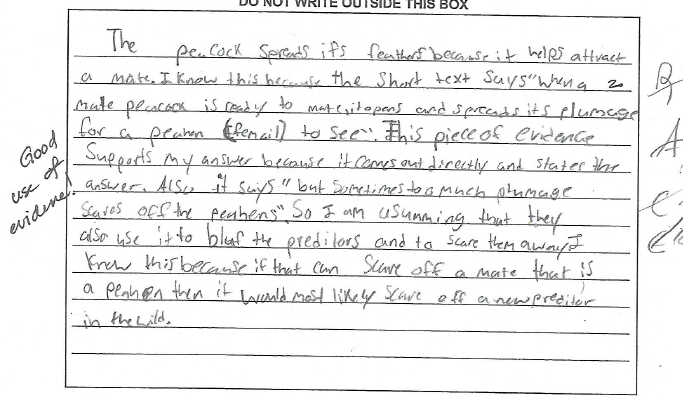 DO NOT WRITE OUTSIDE THIS BOX
The peacock spreads it's feathers because it helps attract
a mate. I know this because the short text says "When a
mate peacock is ready to mate, it opens and spreads its plumage
for a peahen (femail) to see". This piece of evidence
Supports my answer because it comes out directly and states the
answer. Also it says "but sometimes to a much plumage
scares off the peahens". So I am usumming that they
also use it to bluf the preditors and to scare them away I
know this because if that can scare off a mate that is
a peahen then it would most likely scare off a new preditor
in the wild.
Good
use of
evidence!
R
A